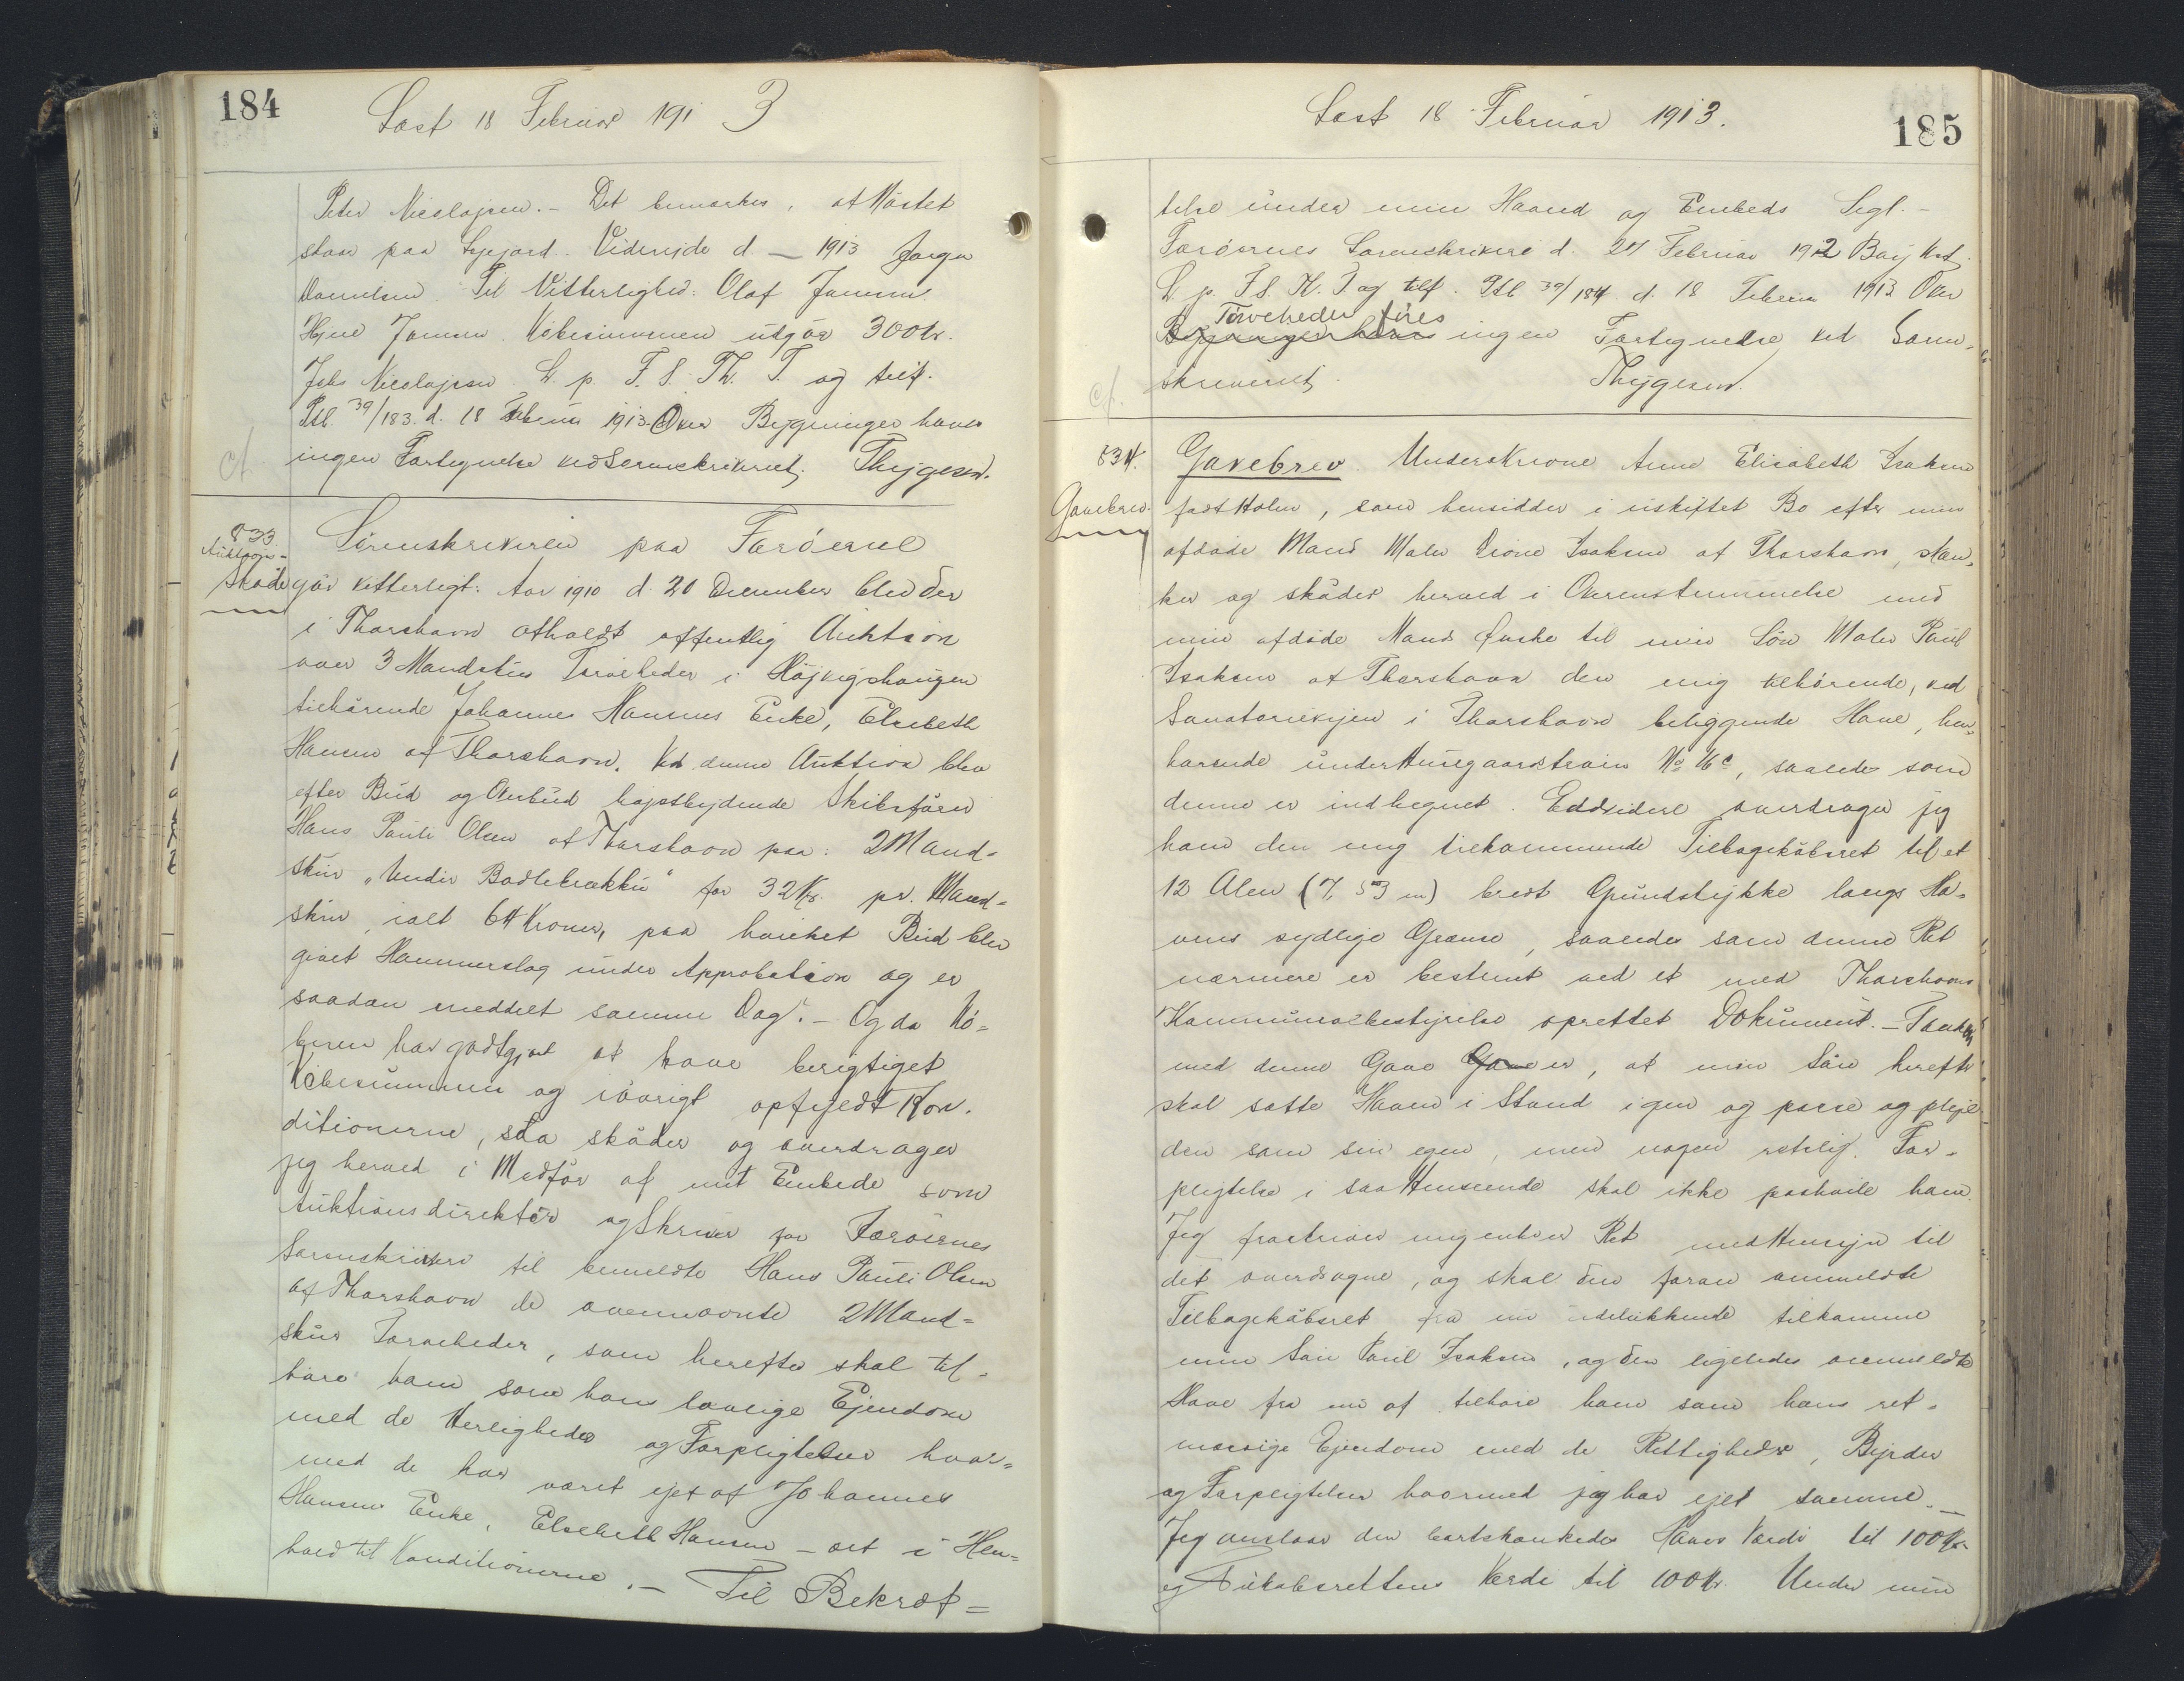 184
Læst 18 Februar 1913
Peter Nicolajsen.- Det bemærkes, at Nøstet
staar paa Lejejord. Videreide d — 1913 Jørgen
Danielsen. Til Vitterlighed: Olaf Jensen
Jensen. Købesummen udgør 300 kr.
Jobs Nicolajsen. L. p. F. S. Th. T. og tilf.
Ptb. 39/183. d. 18 Februar 1913. Over Bygninger haves
ingen Fortegnelse ved Sorenskriveriet. Thygesen.
cf.
833.
Auktions-
skøde
Sorenskriveren paa Færøerne
gør vitterligt: Aar 1910 d. 20 December blev der
i Thorshavn afholdt offentlig Auktion
over 3 Mandskur Tørveheder i Højvigshaugen
tilhørende Johannes Hansens Enke, Elsebeth
Hansen af Thorshavn. Ved denne Auktion blev
efter Bud og Overbud højstbydende Skibsfører
Hans Pauli Olsen af Thorshavn paa: 2 Mand-
skur "Undir Bodlebrekku" for 32 Kr. pr. Mand-
skur, ialt 64 Kroner, paa hvilket Bud blev
givet Hammerslag under Approbation og er
saadan meddelt samme Dag.- Og da Kø-
beren har godtgjort at have berigtiget
Købesummen og iøvrigt opfyldt Kon-
ditionerne, saa skøder og overdrager
jeg herved i Medfør af mit Embede som
Auktionsdirektør og Skriver for Færøernes
Sorenskriveri til bemeldte Hans Pauli Olsen
af Thorshavn de ovennævnte 2 Mand-
skur Tørveheder, som herefter skal til-
høre ham som hans lovlige Ejendom
med de Herligheder og Forpligtelser hvor-
med de har været ejet af Johannes
Hansens Enke, Elsebeth Hansen – alt i Hen-
hold til Konditionerne.- Til Bekræf-
185
Læst 18 Februar 1913.
telse under min Haand og Embeds Segl.-
Færøernes Sorenskriveri d. 27 Februar 1912 Bærentsen
L p. F. S. K. T. og tilf. Ptb 39/184 d. 18 Februar 1913 Over
Tørveheder føres
Bygninger haves ingen Fortegnelse ved Soren-
skriveriet. Thygesen.
cf.
834.
Gavebrev.
Gavebrev. Underskrevne Anne Elisabeth Isaksen
født Holm, som hensidder i uskiftet Bo efter min
afdøde Mand Maler Drone Isaksen af Thorshavn, skæn-
ker og skøder herved i Overensstemmelse med
min afdøde Mands Ønske til min Søn Maler Paul
Isaksen af Thorshavn den mig tilhørende, ved
Sanatorievejen i Thorshavn beliggende Have, hen-
hørende under Husegaardstrøin No 16c, saaledes som
denne er indhegnet. Endvidere overdrager jeg
ham den mig tilkommende Tilbagekøbsret til et
12 Alen (7,53 m) bredt Grundstykke langs Ha-
vens sydlige Grænse, saaledes som denne Ret
nærmere er bestemt ved et med Thorshavns
Kommunalbestyrelse oprettet Dokument.- Tanken
med denne Gave Gave er, at min Søn herefter
skal sætte Haven i Stand igen og passe og pleje
den som sin egen, men nogen retslig For-
pligtelse i saa Henseende skal ikke paahvile ham.
Jeg fraskriver mig enhver Ret med Hensyn til
det overdragne, og skal den foran ommeldte
Tilbagekøbsret fra nu udelukkende tilkomme
min Søn Paul Isaksen, og den ligeledes ommeldte
Have fra nu af tilhøre ham som hans ret-
mæssige Ejendom med de Rettigheder, Byrder
og Forpligtelser hvormed jeg har ejet samme.-
Jeg anslaar den bortskænkede Haves Værdi til 100 Kr.
og Tilbakøbsrettens Værdi til 100 Kr. Under min